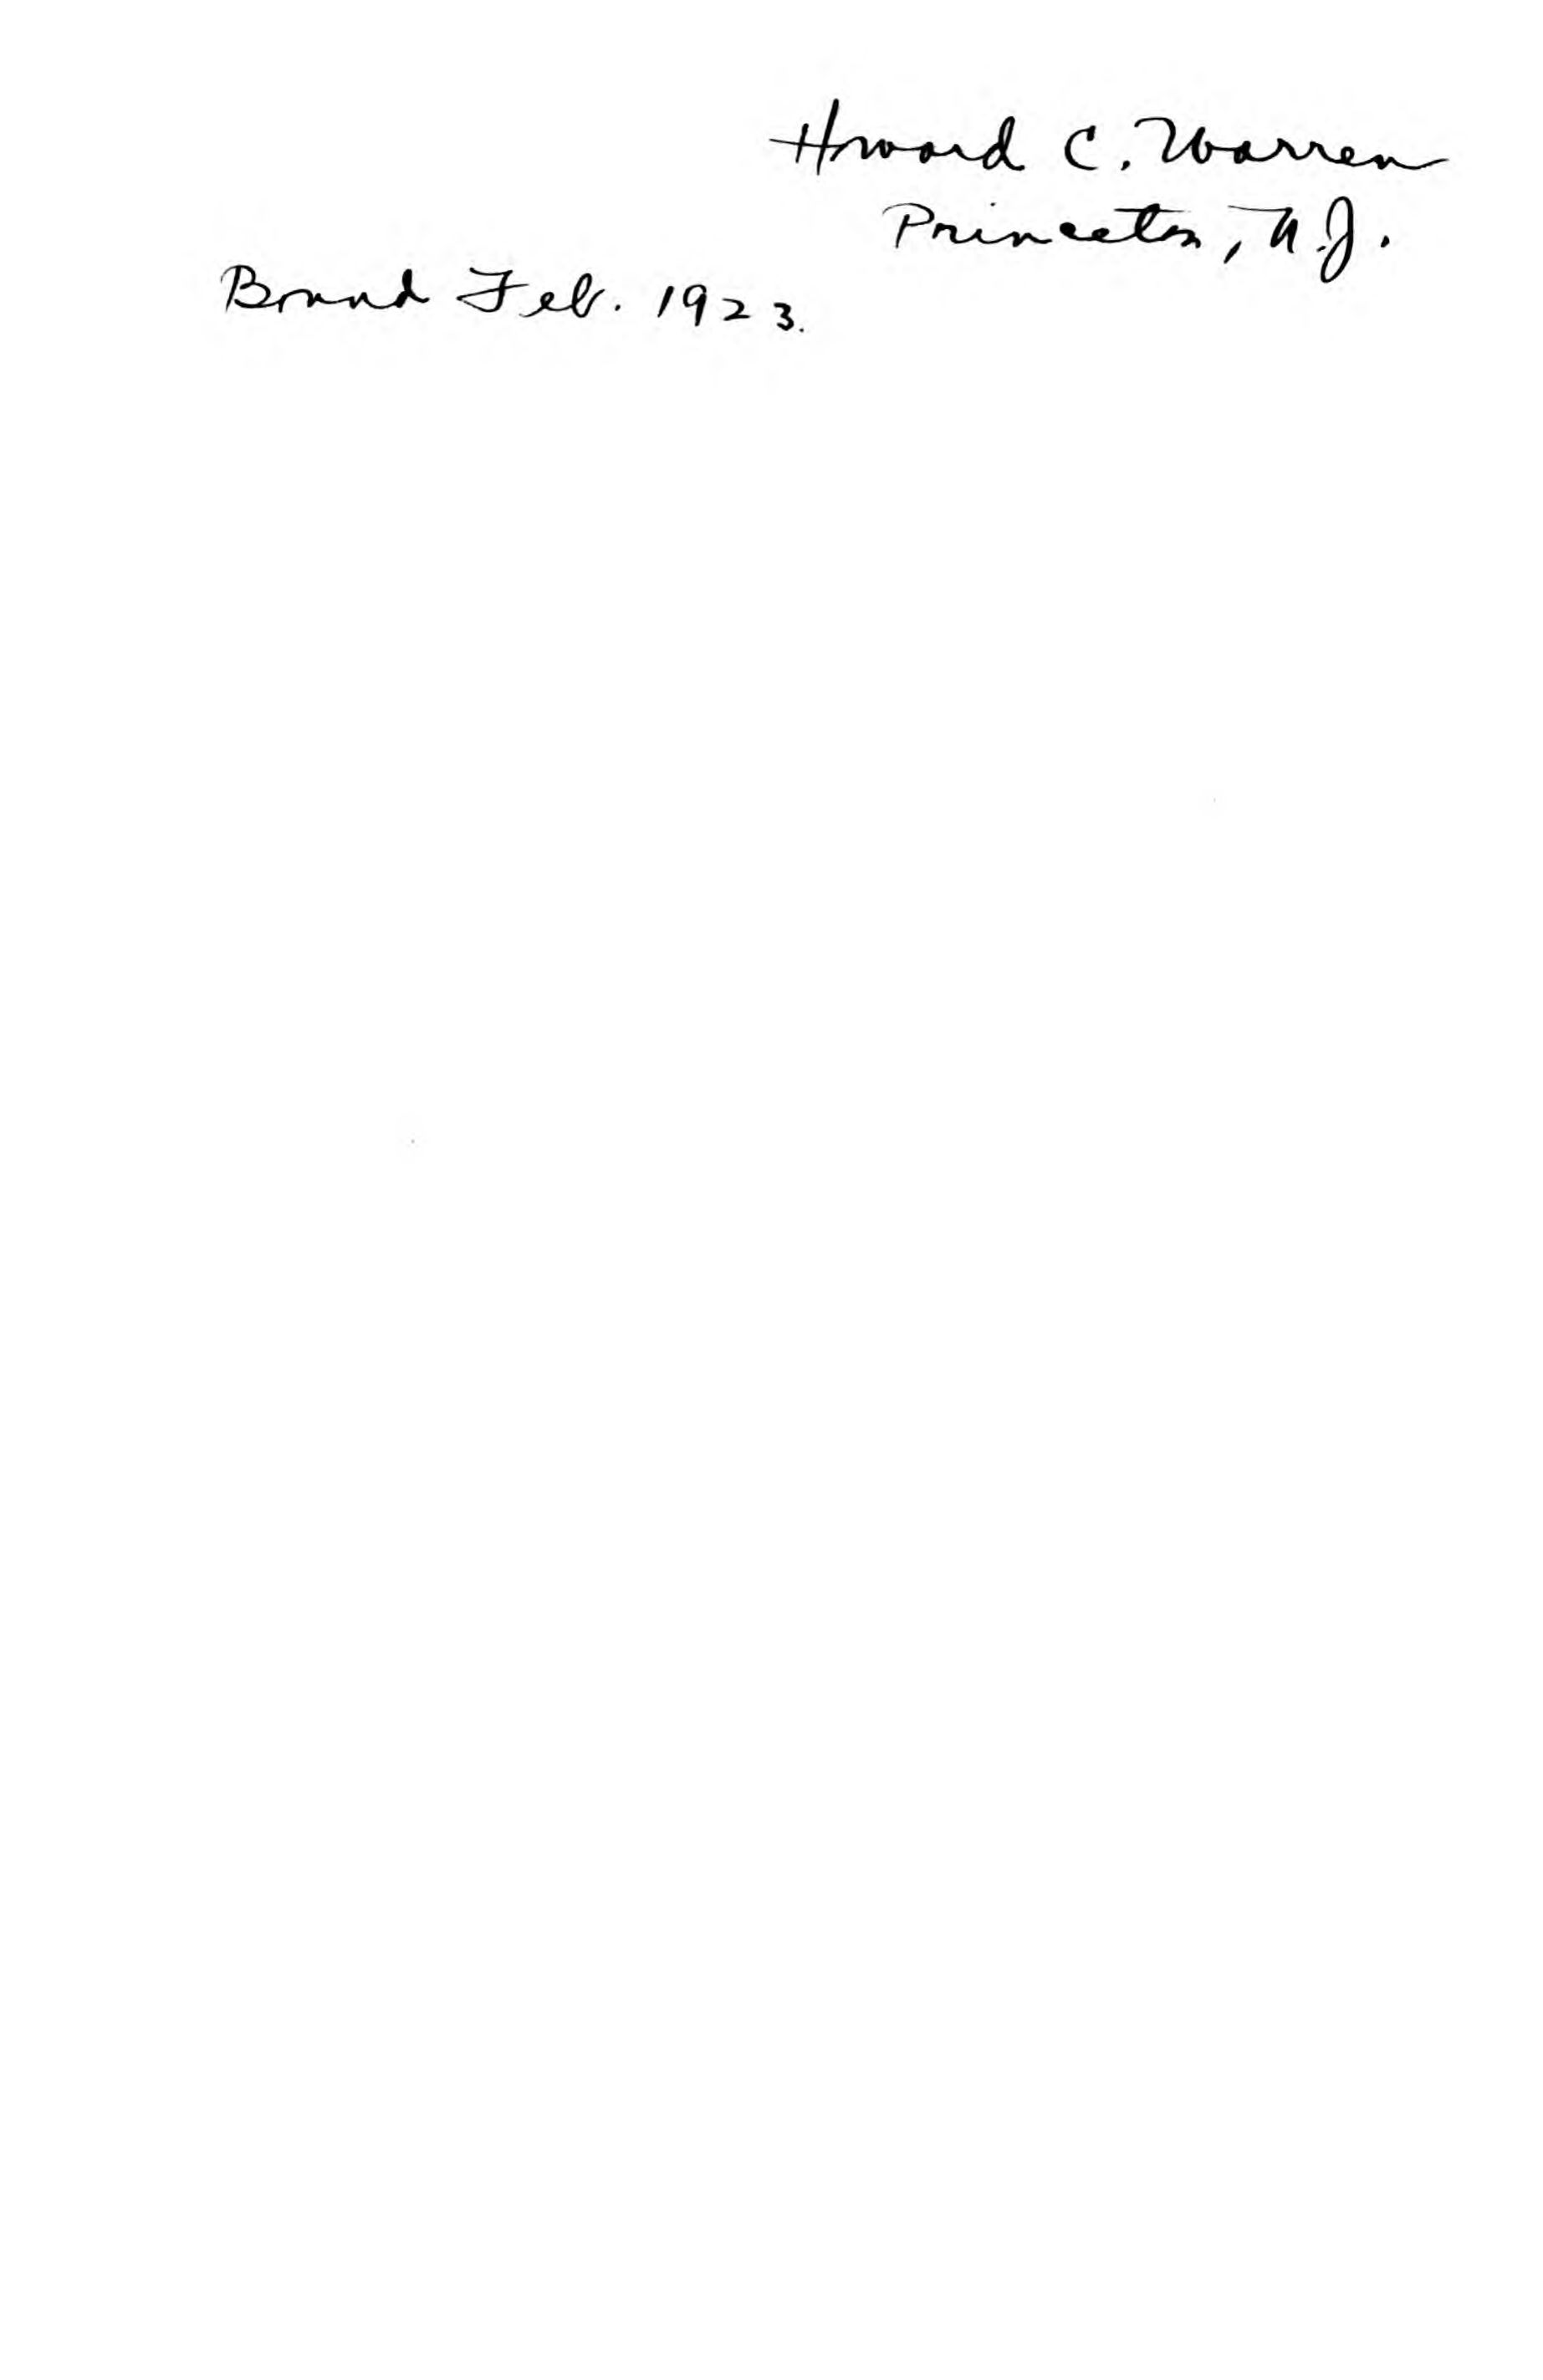 Howard C. Warren
Princeton, N.J.
Bound Feb. 1923.